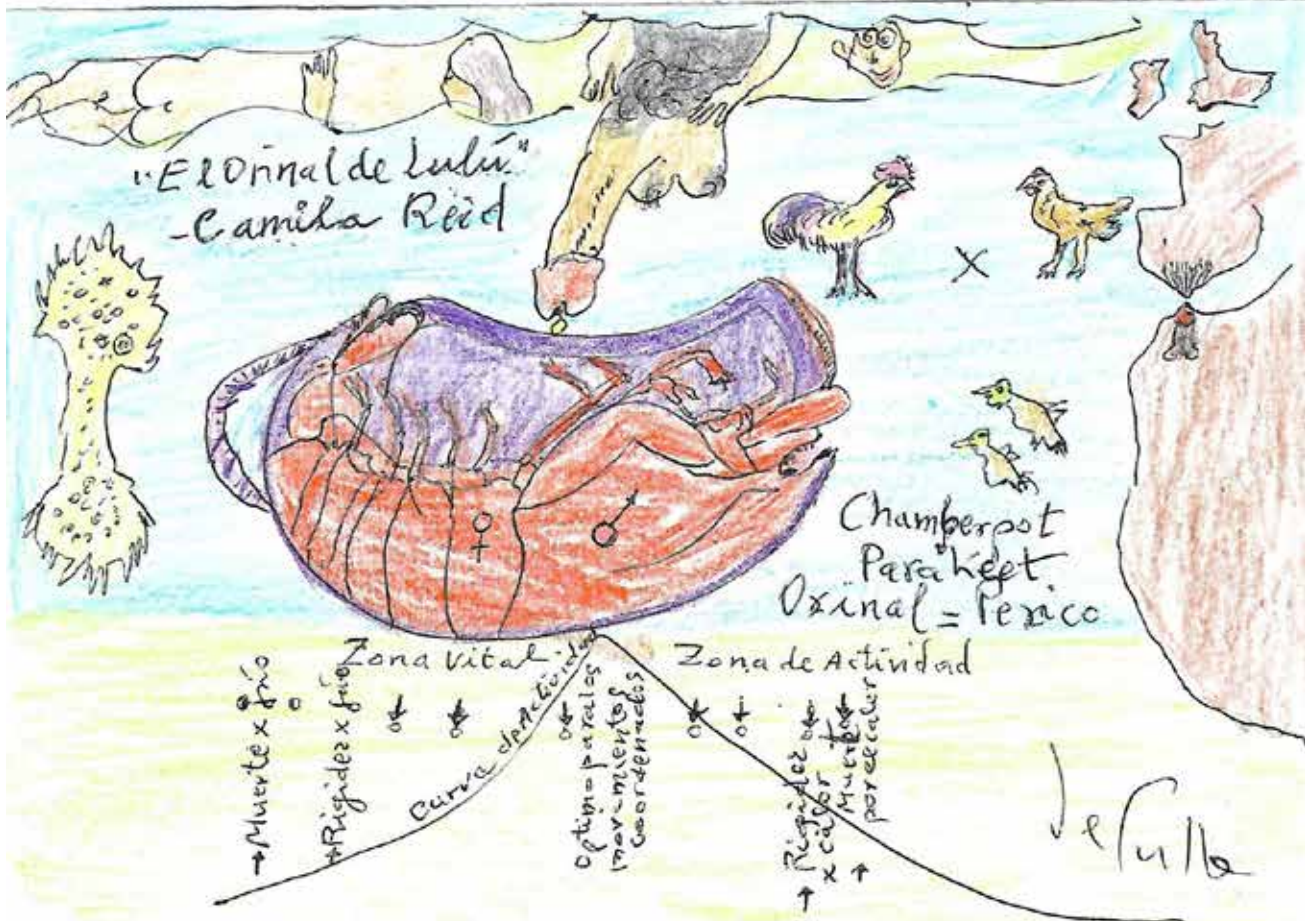 "El Orinal de Lulú"
-Camila Reid
Chamberpot
Parakeet
Orinal = Perico
Zona Vital
Zona de Actividad
→ Muerte x frío
→ Rigidez x frío
Curva de Actividad
Optimo para los
movimientos
coordenados
→ Rigidez
x calor
→ Muerte
por calor